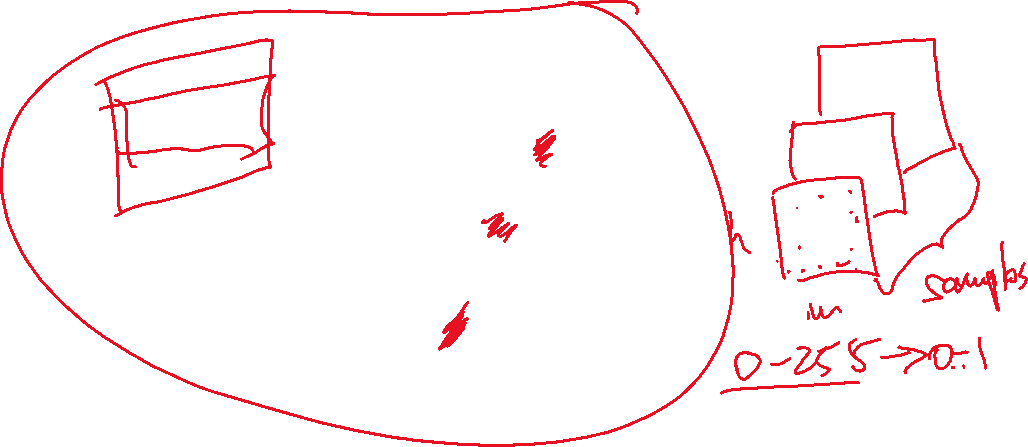 samples
0-255→0..1